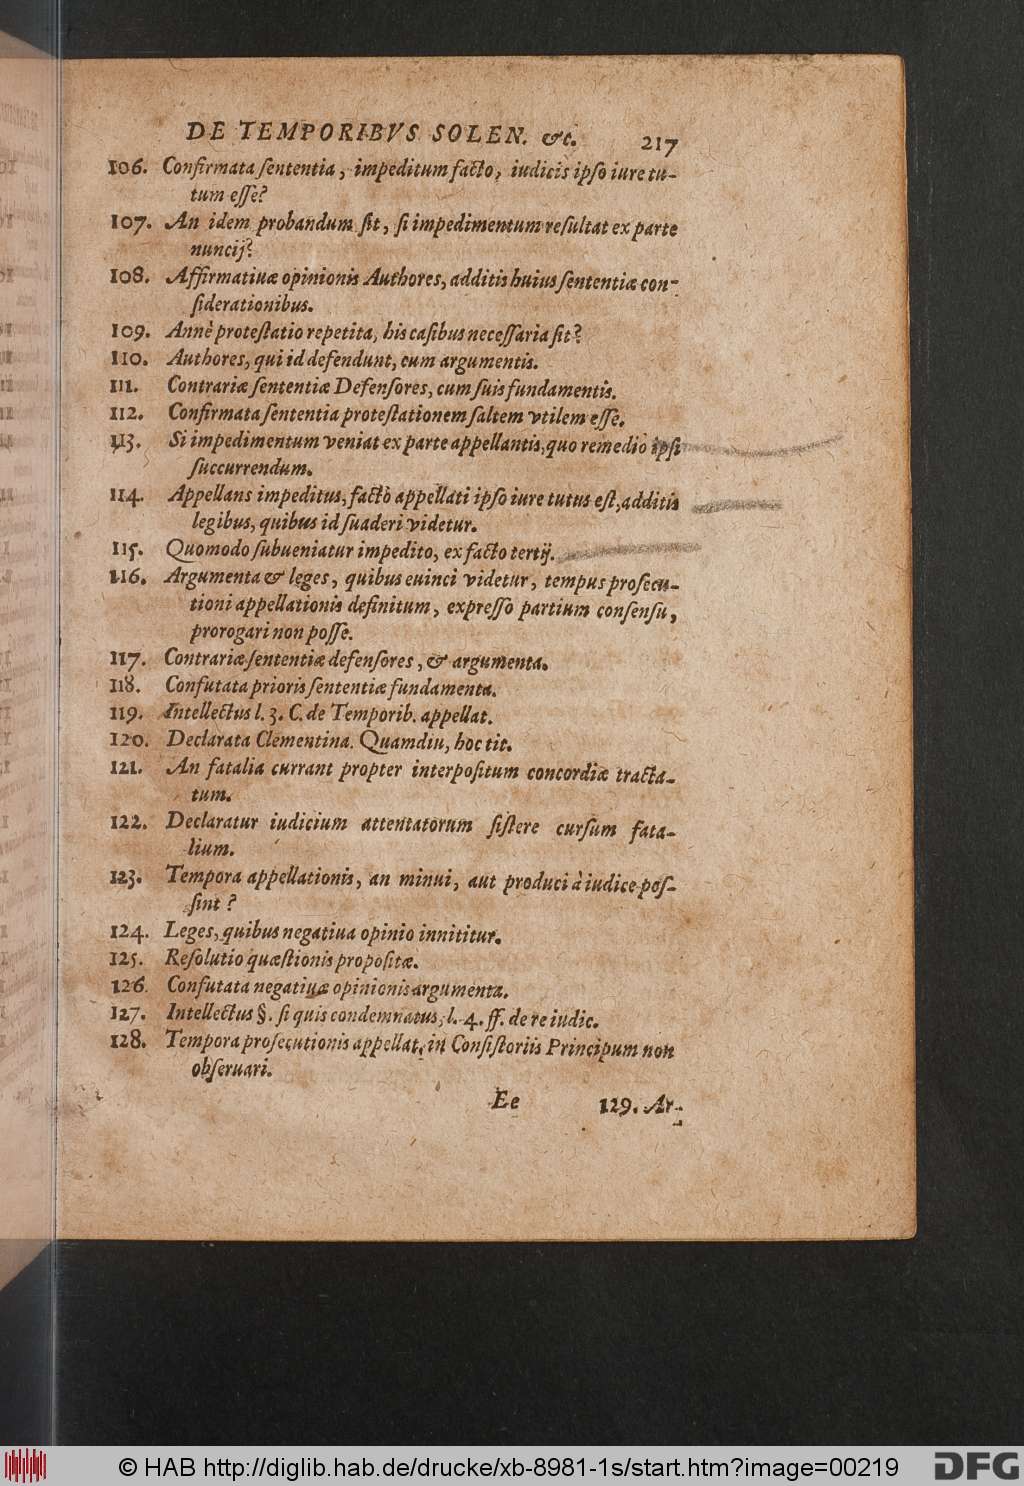 DE TEMPORIBVS SOLEN. &c. 217
106. Confirmata ſententia, impeditum facto, iudicis ipſo iure tu-
tum eſſe?
107. An idem probandum ſit, ſi impedimentum reſultat ex parte
nuncij?
108. Affirmatiuæ opinionis Authores, additis huius ſententiæ con-
ſiderationibus.
109. Annè proteſtatio repetita, his caſibus neceſſaria ſit?
110. Authores, qui id defendunt, cum argumentis.
111. Contrariæ ſententiæ Defenſores, cum ſuis fundamentis.
112. Confirmata ſententia proteſtationem ſaltem vtilem eſſe.
113. Si impedimentum veniat ex parte appellantis, quo remedio ipſi
ſuccurrendum.
114. Appellans impeditus, factò appellati ipſo iure tutus eſt, additis
legibus, quibus id ſuaderi videtur.
115. Quomodo ſubueniatur impedito, ex facto tertij.
116. Argumenta & leges, quibus euinci videtur, tempus proſecu-
tioni appellationis definitum, expreſſo partium conſenſu,
prorogari non poſſe.
117. Contrariæ ſententiæ defenſores, & argumenta.
118. Confutata prioris ſententiæ fundamenta.
119. Intellectus l. 3. C. de Temporib. appellat.
120. Declarata Clementina. Quamdiu, hoc tit.
121. An fatalia currant propter interpoſitum concordiæ tracta-
tum.
122. Declaratur iudicium attentatorum ſiſtere curſum fata-
lium.
123. Tempora appellationis, an minui, aut produci à iudice poſ-
ſint?
124. Leges, quibus negatiua opinio innititur.
125. Reſolutio quæſtionis propoſitæ.
126. Confutata negatiuæ opinionis argumenta.
127. Intellectus §. ſi quis condemnatus, l. 4. ff. de re iudic.
128. Tempora proſecutionis appellat. in Conſiſtoriis Principum non
obſeruari.
Ee 129. Ar-
© HAB http://diglib.hab.de/drucke/xb-8981-1s/start.htm?image=00219
DFG